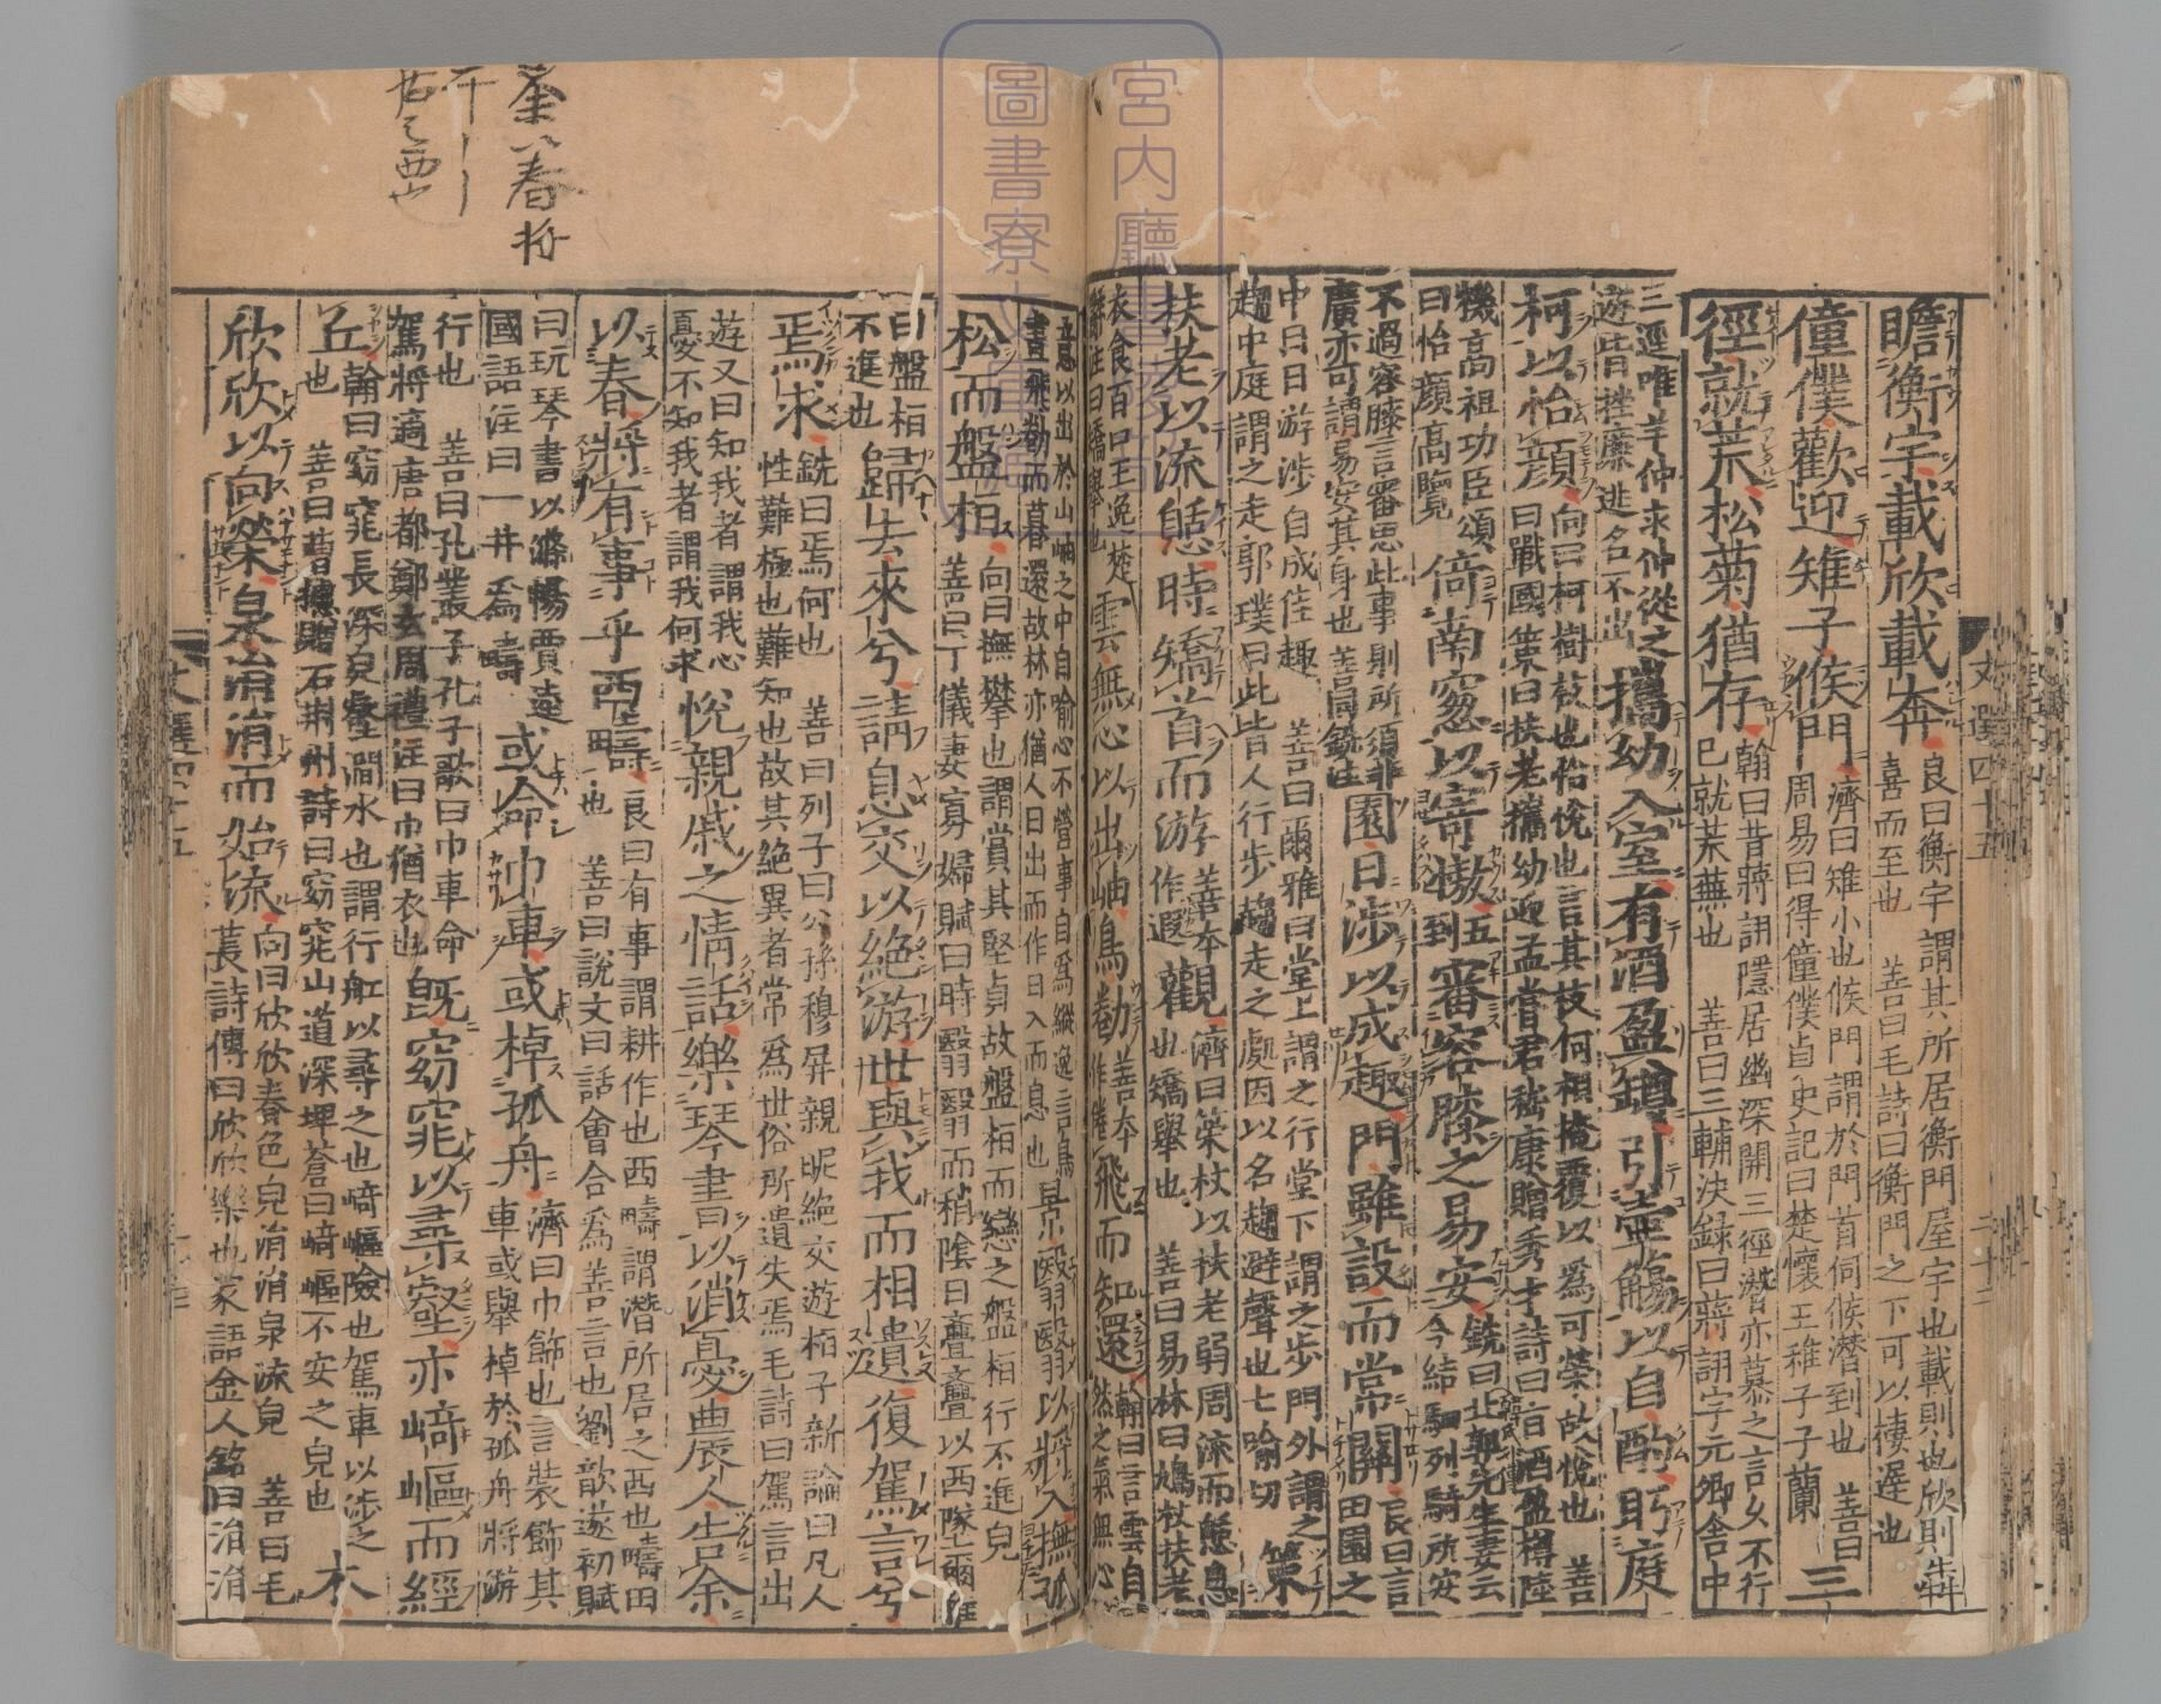 瞻衡宇載欣載奔良曰衡宇謂其所居衡門屋宇也載則也欣則犇喜而至也 善曰毛詩曰衡門之下可以棲遲也
僮僕歡迎雉子候門濟曰雉小也候門謂於門首伺候潛到也 善曰周易曰得僮僕貞史記曰楚懷王稚子子蘭三
徑就荒松菊猶存翰曰昔蔣詡隱居幽深開三徑潛亦慕之言久不行已就荒蕪也 善曰三輔決録曰蔣詡字元卿舎中
三逕唯羊仲求仲從之遊皆挫廉逃名不出攜幼入室有酒盈罇引壷觴以自酌眄庭
柯以怡顏向曰柯樹枝也怡悅也言其枝何相掩覆以爲可榮故悅也 善曰戰國策曰扶老攜幼迎孟嘗君嵇康贈秀才詩曰旨酒盈樽陸
機高祖功臣頌曰怡顏高覽倚南窓以寄慠五到審容膝之易安銑曰北郭先生妻云今結駟列騎所安
不過容膝言審思此事則所須非廣亦可謂易安其身也 善同銑注園日渉以成趣門雖設而常關良曰言田園之
中日日游涉自成佳趣 善曰爾雅曰堂上謂之行堂下謂之步門外謂之趨中庭謂之走郭璞曰此皆人行步趨走之處因以名趨避聲也七喻切 策
扶老以流憩時矯首而游善本作遐觀濟曰策杖以扶老弱周流而憩息也矯舉也 善曰易林曰鳩杖扶老
衣食百口王逸楚辭注曰矯舉也雲無心以出岫鳥勌善本作倦飛而知還翰曰言雲自然之氣無心
意以出於山岫之中自喻心不營事自爲縱逸言鳥晝飛勌而暮還故林亦猶人日出而作日入而息也景翳翳以將入撫孤
松而盤桓向曰撫攀也謂賞其堅貞故盤桓而戀之盤桓行不進皃 善曰丁儀妻寡婦賦曰時翳翳而稍陰日亹亹以西墜爾雅
曰盤桓不進也歸去來兮請息交以絶游世與我而相遺復駕言兮
焉求銑曰焉何也 善曰列子曰公孫穆屏親昵絶交遊桓子新論曰凡人性難極也難知也故其絶異者常爲世俗所遺失焉毛詩曰駕言出
遊又曰知我者謂我心憂不知我者謂我何求悅親戚之情話樂琴書以消憂農人告余
以春將有事乎西疇良曰有事謂耕作也西疇謂潛所居之西也疇田也 善曰說文曰話會合爲善言也劉歆遂初賦
曰玩琴書以滌暢賈逵國語注曰一井爲疇或命巾車或棹孤舟濟曰巾飾也言裝飾其車或舉棹於孤舟將游
行也 善曰孔叢子孔子歌曰巾車命駕將適唐都鄭玄周禮注曰巾猶衣也既窈窕以尋壑亦崎嶇而經
丘翰曰窈窕長深皃壑澗水也謂行舡以尋之也崎嶇險也駕車以渉之也 善曰曹攄贈石荆州詩曰窈窕山道深埤蒼曰崎嶇不安之皃也 木
欣欣以向榮泉涓涓而始流向曰欣欣春色皃涓涓泉流皃 善曰毛萇詩傳曰欣欣樂也家語金人銘曰涓涓
文選四十五
二十二
宮内廳
圖書寮